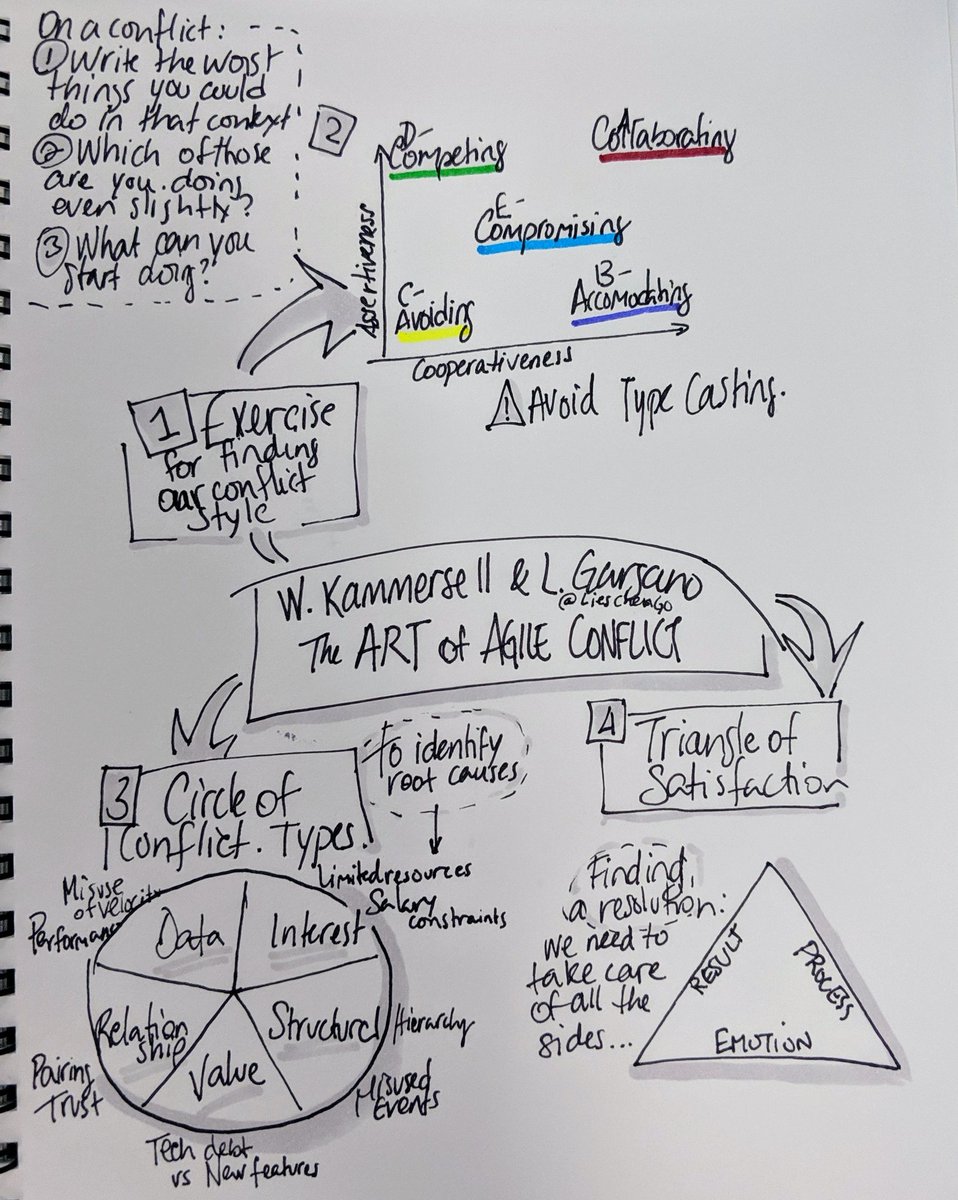 On a conflict:
1 Write the worst
things you could
do in that context
2 Which of those
are you doing
even slightly?
3 What can you
start doing?
2
D-
Competing
A
Collaborating
E-
Compromising
C-
Avoiding
B-
Accomodating
Assertiveness
Cooperativeness
! Avoid Type Casting.
1 Exercise
for finding
our conflict
style
W. Kammersell & L. Garsano
@LieschenGo
The ART of AGILE CONFLICT
3 Circle of
Conflict. Types.
To identify
root causes
Limited resources
Salary
constraints
Misuse
of velocity
Performance
Data
Interest
Relation
ship
Structural
Hierarchy
Value
Pairing
Trust
Misused
Events
Tech debt
vs New features
4 Triangle of
Satisfaction
Finding
a resolution:
we need to
take care
of all the
sides...
RESULT
PROCESS
EMOTION